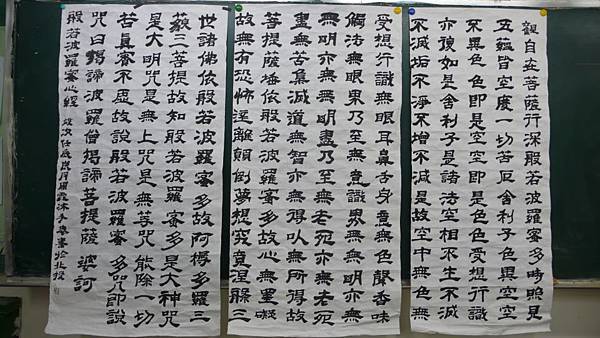 觀自在菩薩行深般若波羅蜜多時照見
五蘊皆空度一切苦厄舍利子色異空空
不異色色即是空空即是色受想行識
亦復如是舍利子是諸法空相不生不滅
不滅垢不淨不增不減是故空中無色無
受想行識無眼耳鼻舌身意無色聲香味
觸法無眼界乃至無意識界無無明亦無
無明亦無無明盡乃至無老死亦無老死
盡無苦集滅道無智亦無得以無所得故
菩提薩埵依般若波羅蜜多故心無罣礙
故無有恐怖遠離顛倒夢想究竟涅槃三
世諸佛依般若波羅蜜多故阿耨多羅三
藐三菩提故知般若波羅蜜多是大神咒
是大明咒是無上咒是無等咒能除一切
苦真實不虛故說般若波羅蜜多咒即說
咒曰揭諦波羅僧揭諦菩提薩婆訶
般若波羅蜜心經 歲次 月 沐手 書於北投